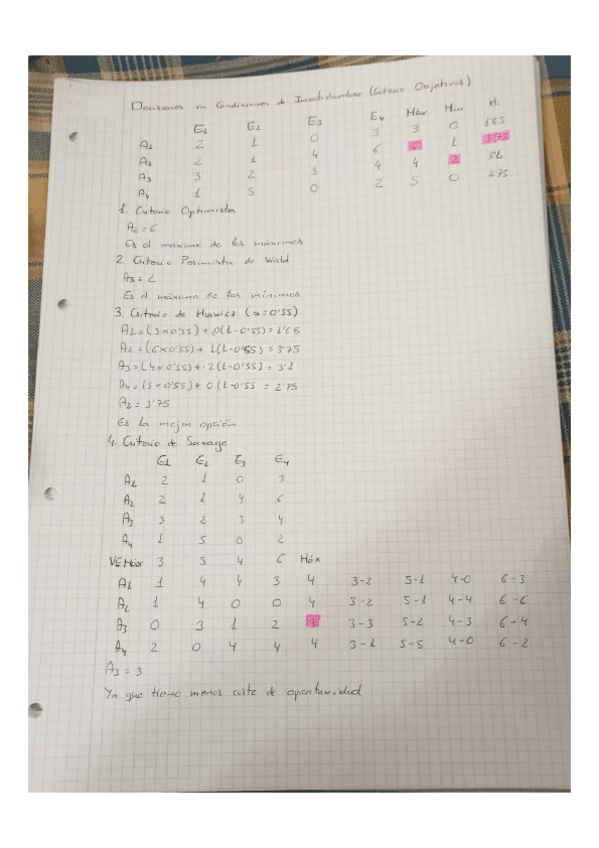 Decisiones en Condiciones de Incertidumbre (Criterio Objetivos)
E1 E2 E3 E4 Máx Mín H.
A1 2 1 0 3 3 0 1'65
A2 2 1 4 6 6 1 3'75
A3 3 2 3 4 4 2 3'1
A4 1 5 0 2 5 0 2'75
1. Criterio Optimista
A2 = 6
Es el máximo de los máximos
2. Criterio Pesimista de Wald
A3 = 2
Es el máximo de los mínimos
3. Criterio de Hurwicz (α=0'55)
A1 = (3×0'55) + 0(1-0'55) = 1'65
A2 = (6×0'55) + 1(1-0'55) = 3'75
A3 = (4×0'55) + 2(1-0'55) = 3'1
A4 = (5×0'55) + 0(1-0'55 = 2'75
A2 = 3'75
Es la mejor opción
4. Criterio de Savage
E1 E2 E3 E4
A1 2 1 0 3
A2 2 1 4 6
A3 3 2 3 4
A4 1 5 0 2
VE Máx 3 5 4 6 Máx
A1 1 4 4 3 4 3-2 5-1 4-0 6-3
A2 1 4 0 0 4 3-2 5-1 4-4 6-6
A3 0 3 1 2 3 3-3 5-2 4-3 6-4
A4 2 0 4 4 4 3-1 5-5 4-0 6-2
A3 = 3
Ya que tiene menos coste de oportunidad